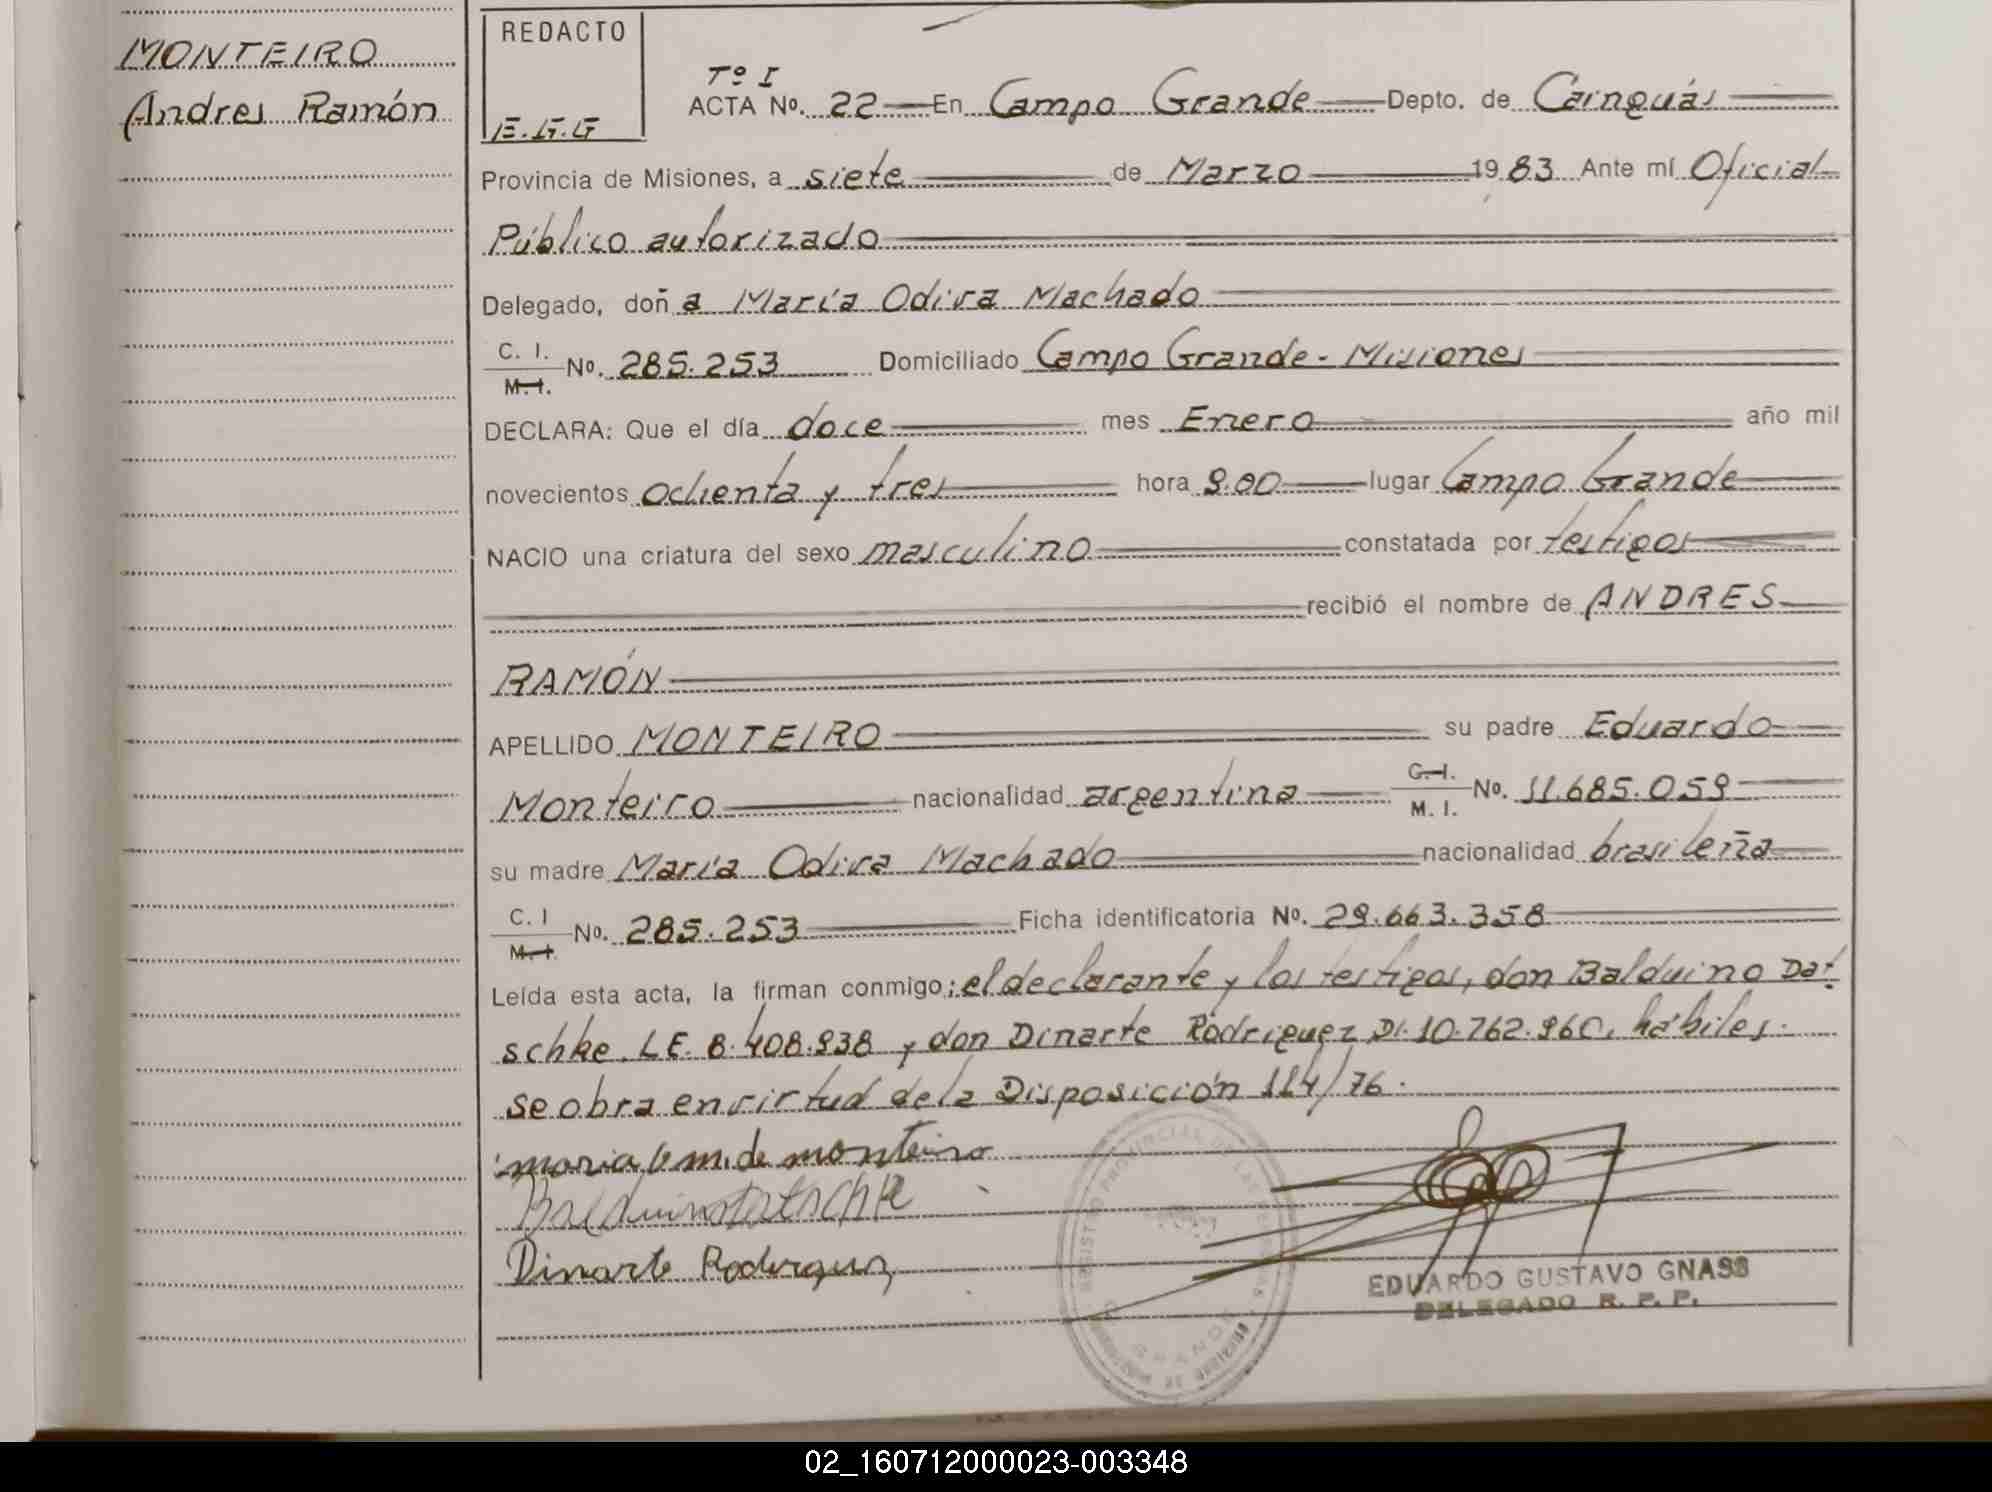 MONTEIRO
Andres Ramón
REDACTO
E.G.G
Tº I
ACTA No. 22 En Campo Grande Depto. de Cainguás
Provincia de Misiones, a siete de Marzo 1983 Ante mí Oficial
Público autorizado
Delegado, doña María Odiva Machado
C. I. M.I. No. 285.253 Domiciliado Campo Grande - Misiones
DECLARA: Que el día doce mes Enero año mil
novecientos ochenta y tres hora 9.00 lugar Campo Grande
NACIO una criatura del sexo masculino constatada por testigos
recibió el nombre de ANDRES
RAMÓN
APELLIDO MONTEIRO su padre Eduardo
Monteiro nacionalidad argentina C.I. M. I. No. 11.685.059
su madre María Odiva Machado nacionalidad brasileña
C. I M.I. No. 285.253 Ficha identificatoria No. 29.663.358
Leída esta acta, la firman conmigo; el declarante y los testigos, don Balduino Dat-
schke. LE. 8.408.938 y don Dinarte Rodriguez DI. 10.762.960, hábiles.
Se obra en virtud de la Disposición 114/76.
maria m. de monteiro
Dinarte Rodriguez
REGISTRO PROVINCIAL DE LAS PERSONAS
EDUARDO GUSTAVO GNASS
DELEGADO R. P. P.
02_160712000023-003348